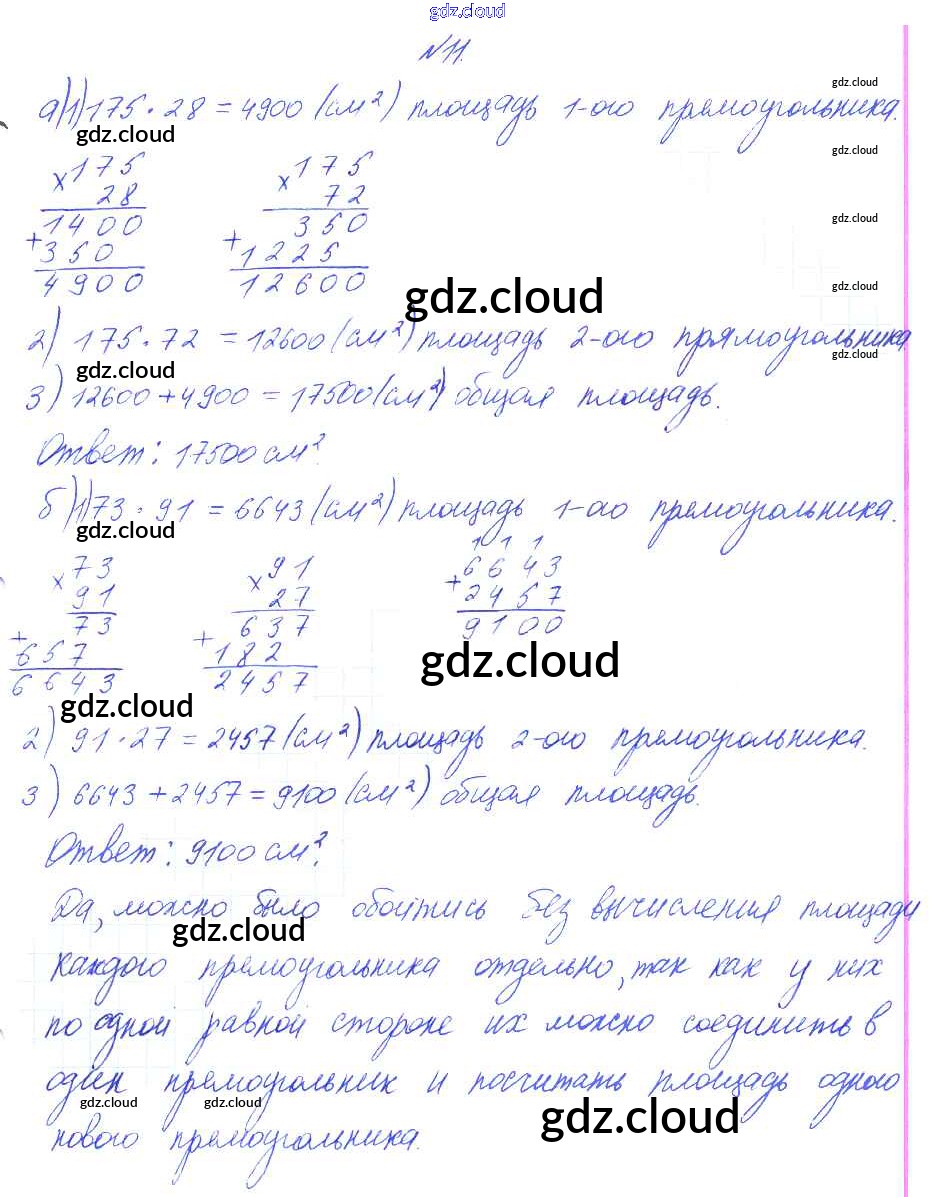 gdz.cloud
№11.
gdz.cloud
а)1) 175 · 28 = 4900 (см²) площадь 1-ого прямоугольника.
gdz.cloud
gdz.cloud
× 175 × 175
28 72
gdz.cloud
1400 350
+ 350 + 1225
4900 12600
gdz.cloud
gdz.cloud
2) 175 · 72 = 12600 (см²) площадь 2-ого прямоугольника
gdz.cloud
gdz.cloud
3) 12600 + 4900 = 17500 (см²) общая площадь.
Ответ: 17500 см².
б)1) 73 · 91 = 6643 (см²) площадь 1-ого прямоугольника.
gdz.cloud
1 1 1
× 73 × 91 + 6643
91 27 2457
73 637 9100
+ 657 + 182
6643 2457
gdz.cloud
gdz.cloud
2) 91 · 27 = 2457 (см²) площадь 2-ого прямоугольника.
3) 6643 + 2457 = 9100 (см²) общая площадь.
Ответ: 9100 см².
Да, можно было обойтись без вычисления площади
gdz.cloud
каждого прямоугольника отдельно, так как у них
по одной равной стороне их можно соединить в
один прямоугольник и посчитать площадь одного
gdz.cloud gdz.cloud gdz.cloud
нового прямоугольника.